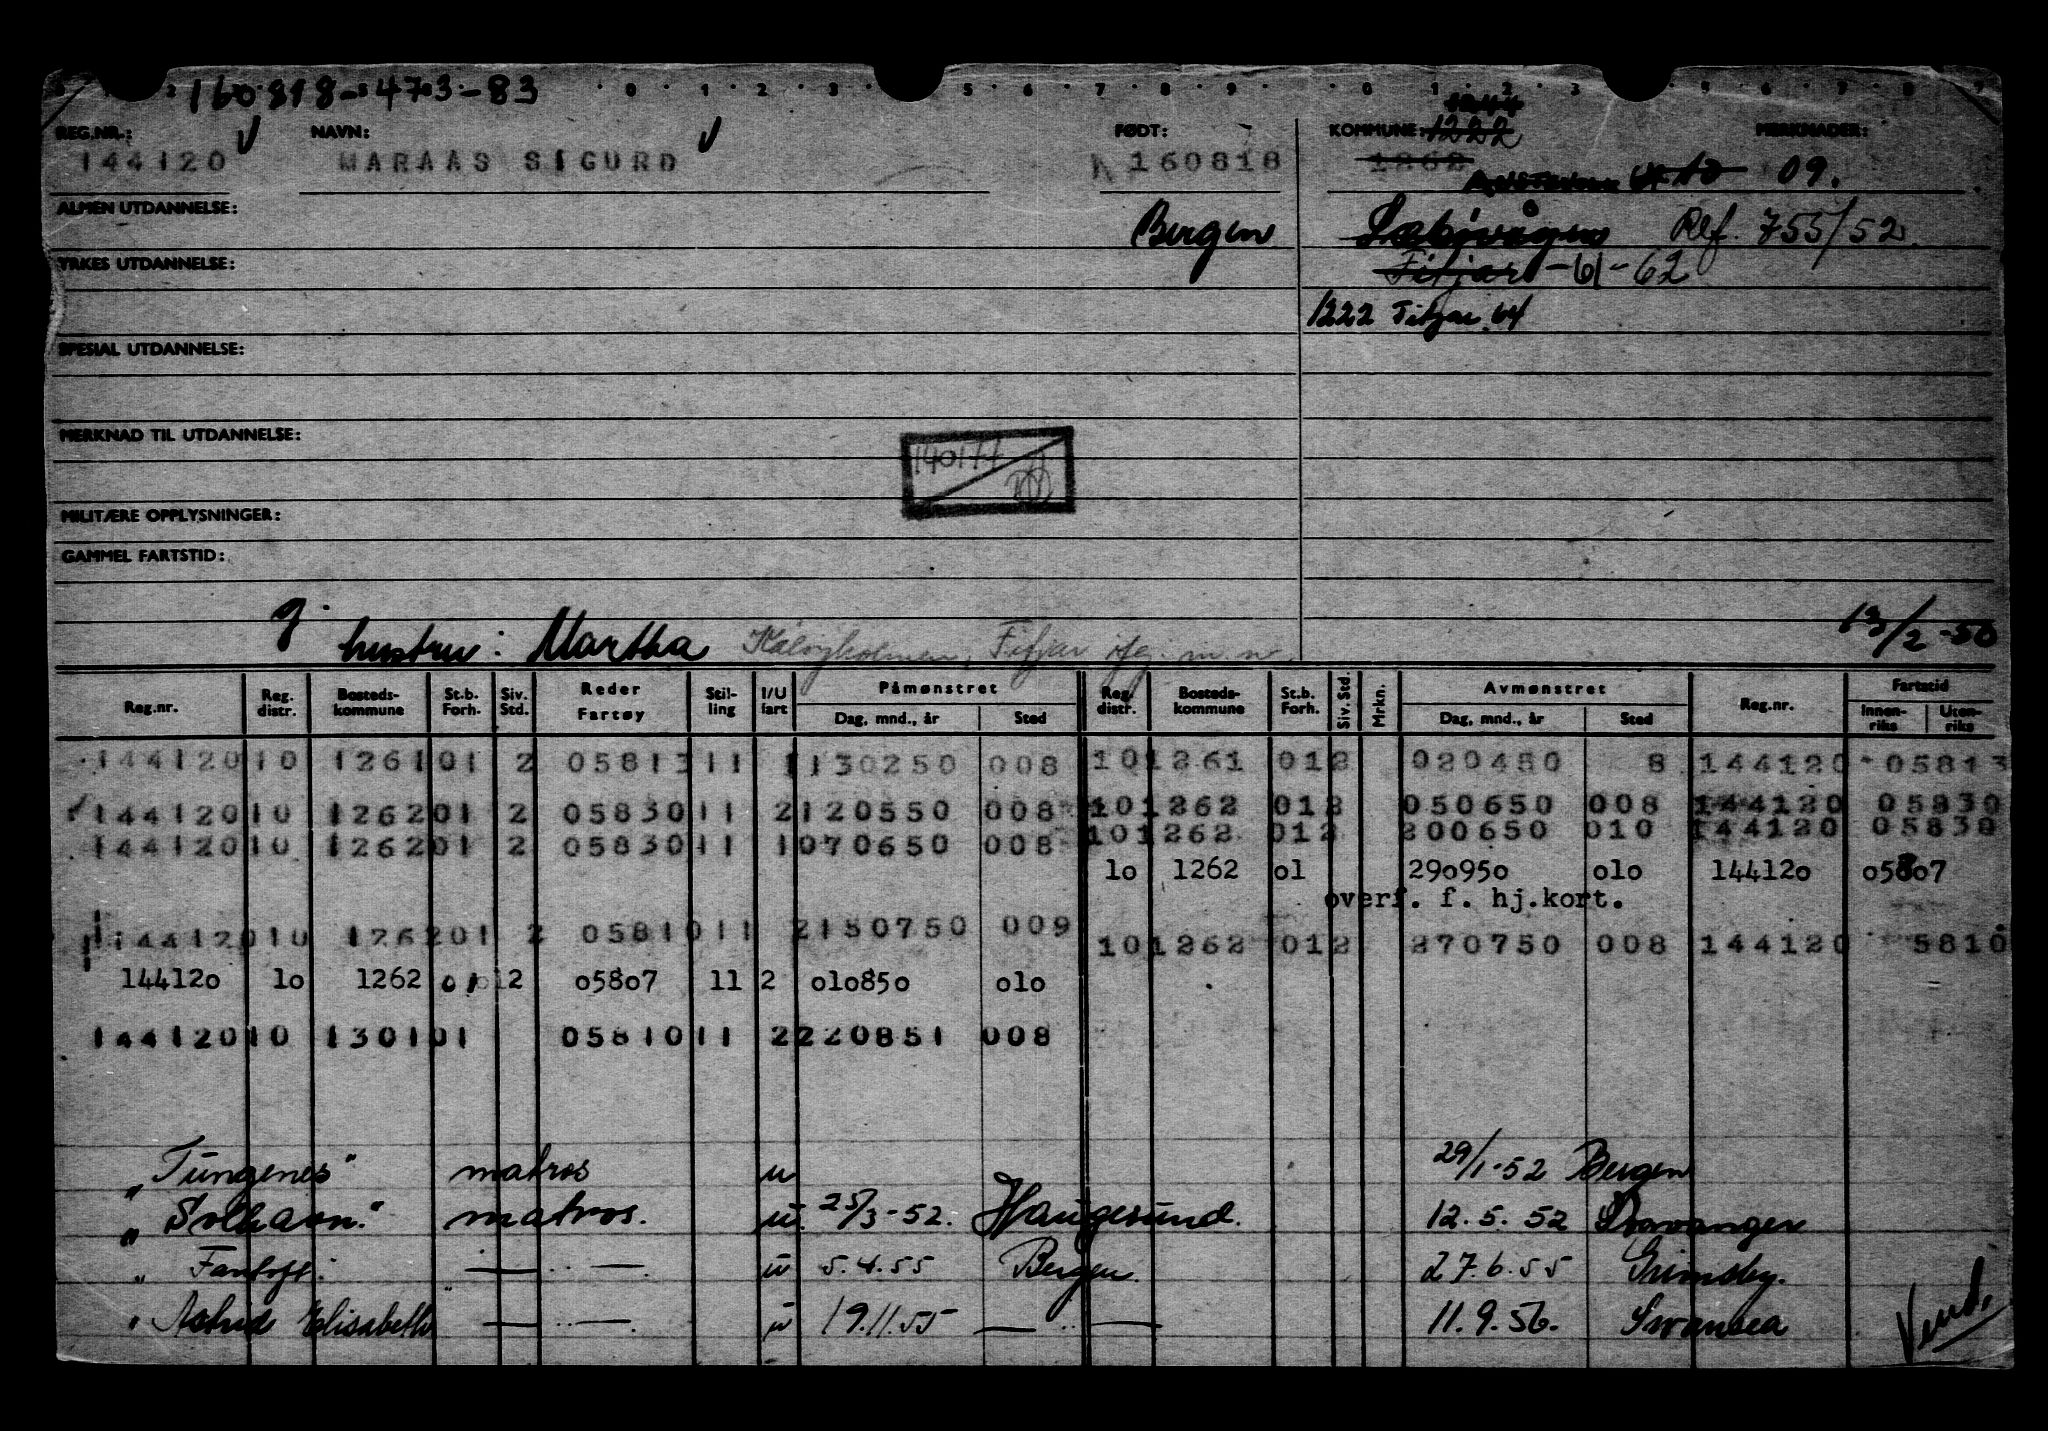 160818-4703-83
REG.NR.: NAVN: FØDT: KOMMUNE: 1222 MERKNADER:
144120 MARAAS SIGURD 160818 1262 09.
ALMEN UTDANNELSE: Bergen Sæbøvågen Ref. 755/52
YRKES UTDANNELSE: Fitjar -61-62
1222 Fitjar 64
SPESIAL UTDANNELSE:
MERKNAD TIL UTDANNELSE:
140177
MILITÆRE OPPLYSNINGER:
GAMMEL FARTSTID:
g. 13/2-50
hustru: Martha Kålvyholmen, Fitjar
Reg.nr. Reg. distr. Bosteds- kommune St.b. Forh. Siv. Std. Reder Fartøy Stil- ling I/U fart Påmønstret Dag, mnd., år Sted Reg. distr. Bosteds- kommune St.b. Forh. Siv. Std. Mrkn. Avmønstret Dag, mnd., år Sted Reg.nr. Fartstid Innen- riks Uten- riks
144120 10 1261 01 2 05813 11 1 130250 008 10 1261 01 2 020450 8 144120 05813
144120 10 1262 01 2 05830 11 2 120550 008 10 1262 01 2 050650 008 144120 05830
144120 10 1262 01 2 05830 11 1 070650 008 10 1262 01 2 200650 010 144120 05830
1o 1262 o1 29o95o o1o 14412o o58o7
overf. f. hj.kort.
144120 10 1262 01 2 05810 11 2 150750 009 10 1262 01 2 270750 008 144120 5810
14412o 1o 1262 01 2 o58o7 11 2 o1o85o o1o
144120 10 1301 01 05810 11 2 220851 008
„Tungenes" matros u 29/1-52 Bergen
„Solhavn." matros. u. 25/3-52. Haugesund. 12.5.52 Stavanger
„ Fantoft. — " — . u 5.4.55 Bergen. 27.6.55 Grimsby.
" Astrid Elisabeth — " — . u 19.11.55 — " — 11.9.56. Swansea
Vend.